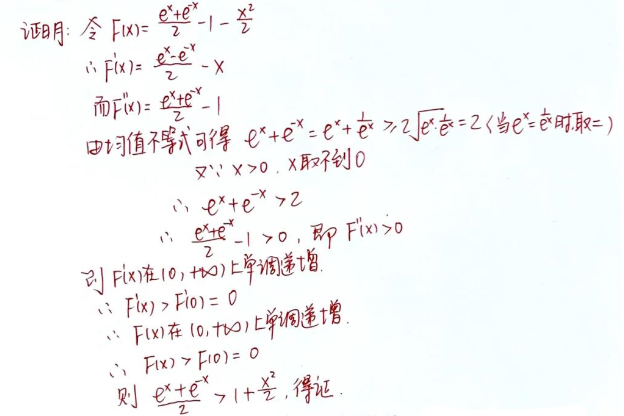 证明: 令 F(x)= (e^x+e^-x)/2 -1- x²/2
∴ F'(x)= (e^x-e^-x)/2 -x
而F''(x)= (e^x+e^-x)/2 -1
由均值不等式可得 e^x+e^-x=e^x+1/e^x ≥2√(e^x·1/e^x)=2 (当e^x=1/e^x时,取=)
又∵ x>0, x取不到0
∴ e^x+e^-x>2
∴ (e^x+e^-x)/2 -1>0, 即 F''(x)>0
则 F'(x)在(0,+∞)上单调递增.
∴ F'(x)>F'(0)=0
∴ F(x)在(0,+∞)上单调递增.
∴ F(x)>F(0)=0
则 (e^x+e^-x)/2 >1+ x²/2, 得证.